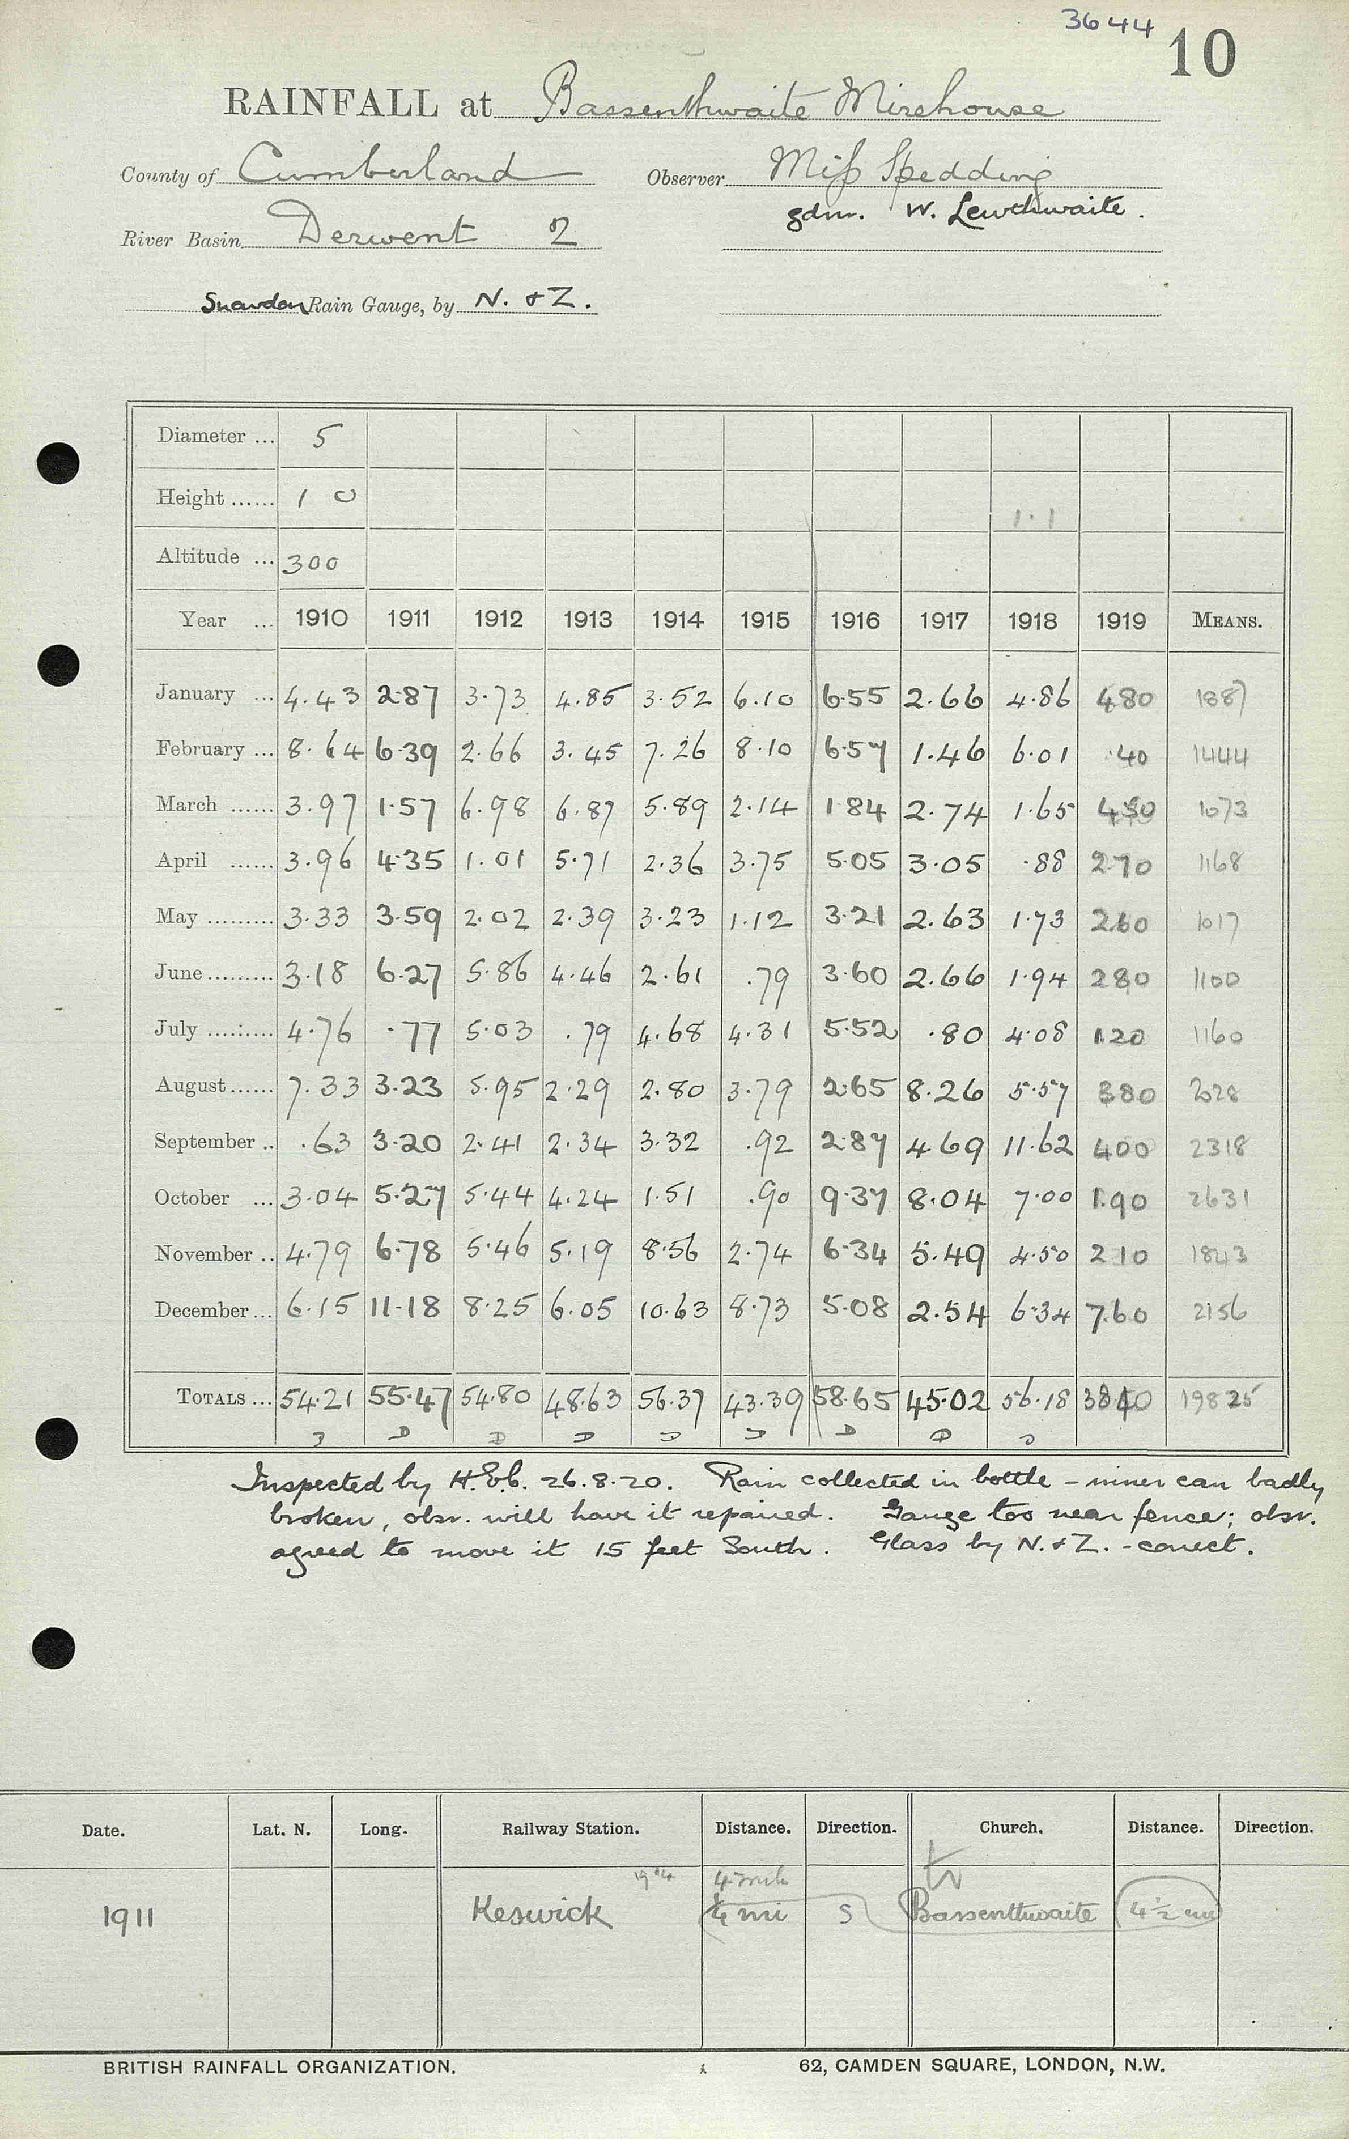 3644 10
RAINFALL at Bassenthwaite Mirehouse
County of Cumberland Observer Miss Spedding
gdnr. W. Lewthwaite.
River Basin Derwent 2
Snowdon Rain Gauge, by N. & Z.
Diameter ... 5
Height ...... 1 0 1.1
Altitude ... 300
Year ... 1910 1911 1912 1913 1914 1915 1916 1917 1918 1919 MEANS.
January ... 4.43 2.87 3.73 4.85 3.52 6.10 6.55 2.66 4.86 480 1387
February ... 8.64 6.39 2.66 3.45 7.26 8.10 6.57 1.46 6.01 .40 1444
March ...... 3.97 1.57 6.98 6.87 5.89 2.14 1.84 2.74 1.65 450 1073
April ...... 3.96 4.35 1.01 5.71 2.36 3.75 5.05 3.05 .88 2.70 1168
May ......... 3.33 3.59 2.02 2.39 3.23 1.12 3.21 2.63 1.73 260 1017
June ......... 3.18 6.27 5.86 4.46 2.61 .79 3.60 2.66 1.94 280 1100
July ......... 4.76 .77 5.03 .79 4.68 4.31 5.52 .80 4.08 1.20 1160
August ...... 7.33 3.23 5.95 2.29 2.80 3.79 2.65 8.26 5.57 380 2028
September .. .63 3.20 2.41 2.34 3.32 .92 2.87 4.69 11.62 400 2318
October ... 3.04 5.27 5.44 4.24 1.51 .90 9.37 8.04 7.00 1.90 2631
November .. 4.79 6.78 5.46 5.19 8.56 2.74 6.34 5.49 4.50 210 1843
December ... 6.15 11.18 8.25 6.05 10.63 8.73 5.08 2.54 6.34 7.60 2156
TOTALS ... 54.21 55.47 54.80 48.63 56.37 43.39 58.65 45.02 56.18 3840 19825
Inspected by 26.8.20. Rain collected in bottle - inner can badly
broken, obsr. will have it repaired. Gauge too near fence; obsr.
agreed to move it 15 feet South. Glass by N. & Z. - correct.
Date. Lat. N. Long. Railway Station. Distance. Direction. Church. Distance. Direction.
1911 Keswick ¼ mi S Bassenthwaite 4½
BRITISH RAINFALL ORGANIZATION. 62, CAMDEN SQUARE, LONDON, N.W.